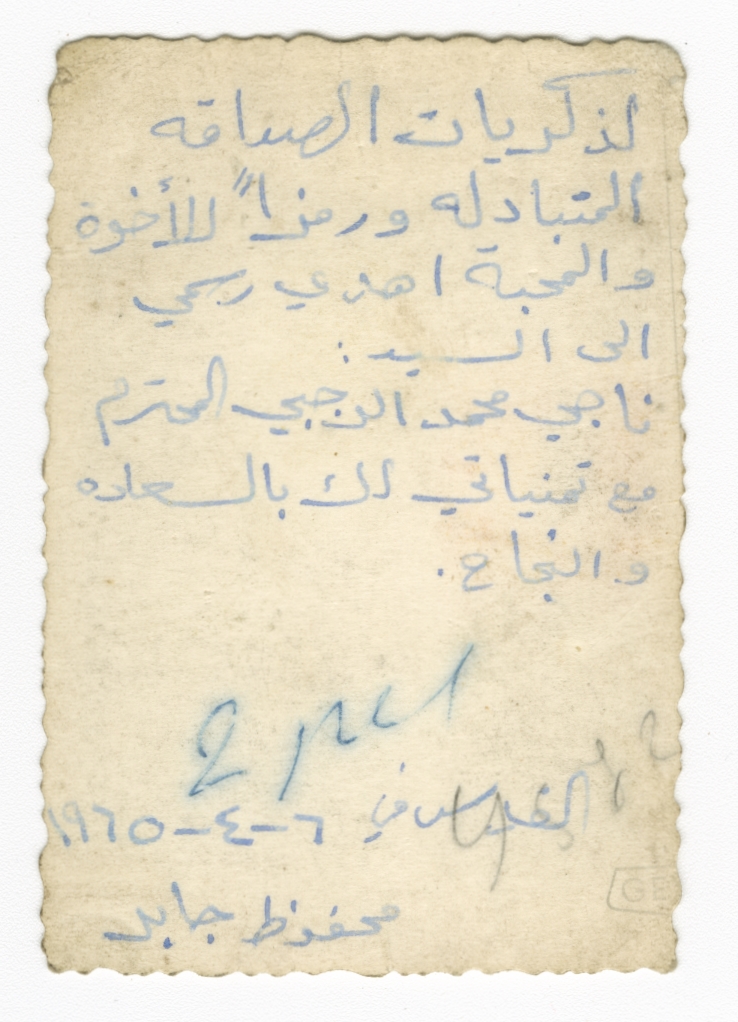 لذكريات الصداقه
المتبادله ورمزاً للأخوة
والمحبة اهدي رسمي
الى السيد :
ناجي محمد الرجبي المحترم
مع تمنياتي لك بالسعاده
والنجاح .
القدس في ٦-٤-١٩٦٥
محفوظ جابر
GE